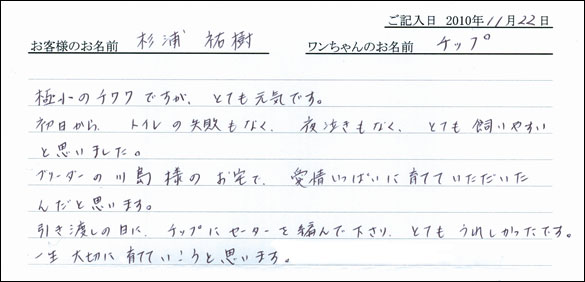 ご記入日 2010年11月22日
お客様のお名前 杉浦 祐樹 ワンちゃんのお名前 チップ
極小のチワワですが、とても元気です。
初日から、トイレの失敗もなく、夜泣きもなく、とても飼いやすい
と思いました。
ブリーダーの川島様のお宅で、愛情いっぱいに育てていただいた
んだと思います。
引き渡しの日に、チップにセーターを編んで下さり、とてもうれしかったです。
一生大切に育てていこうと思います。